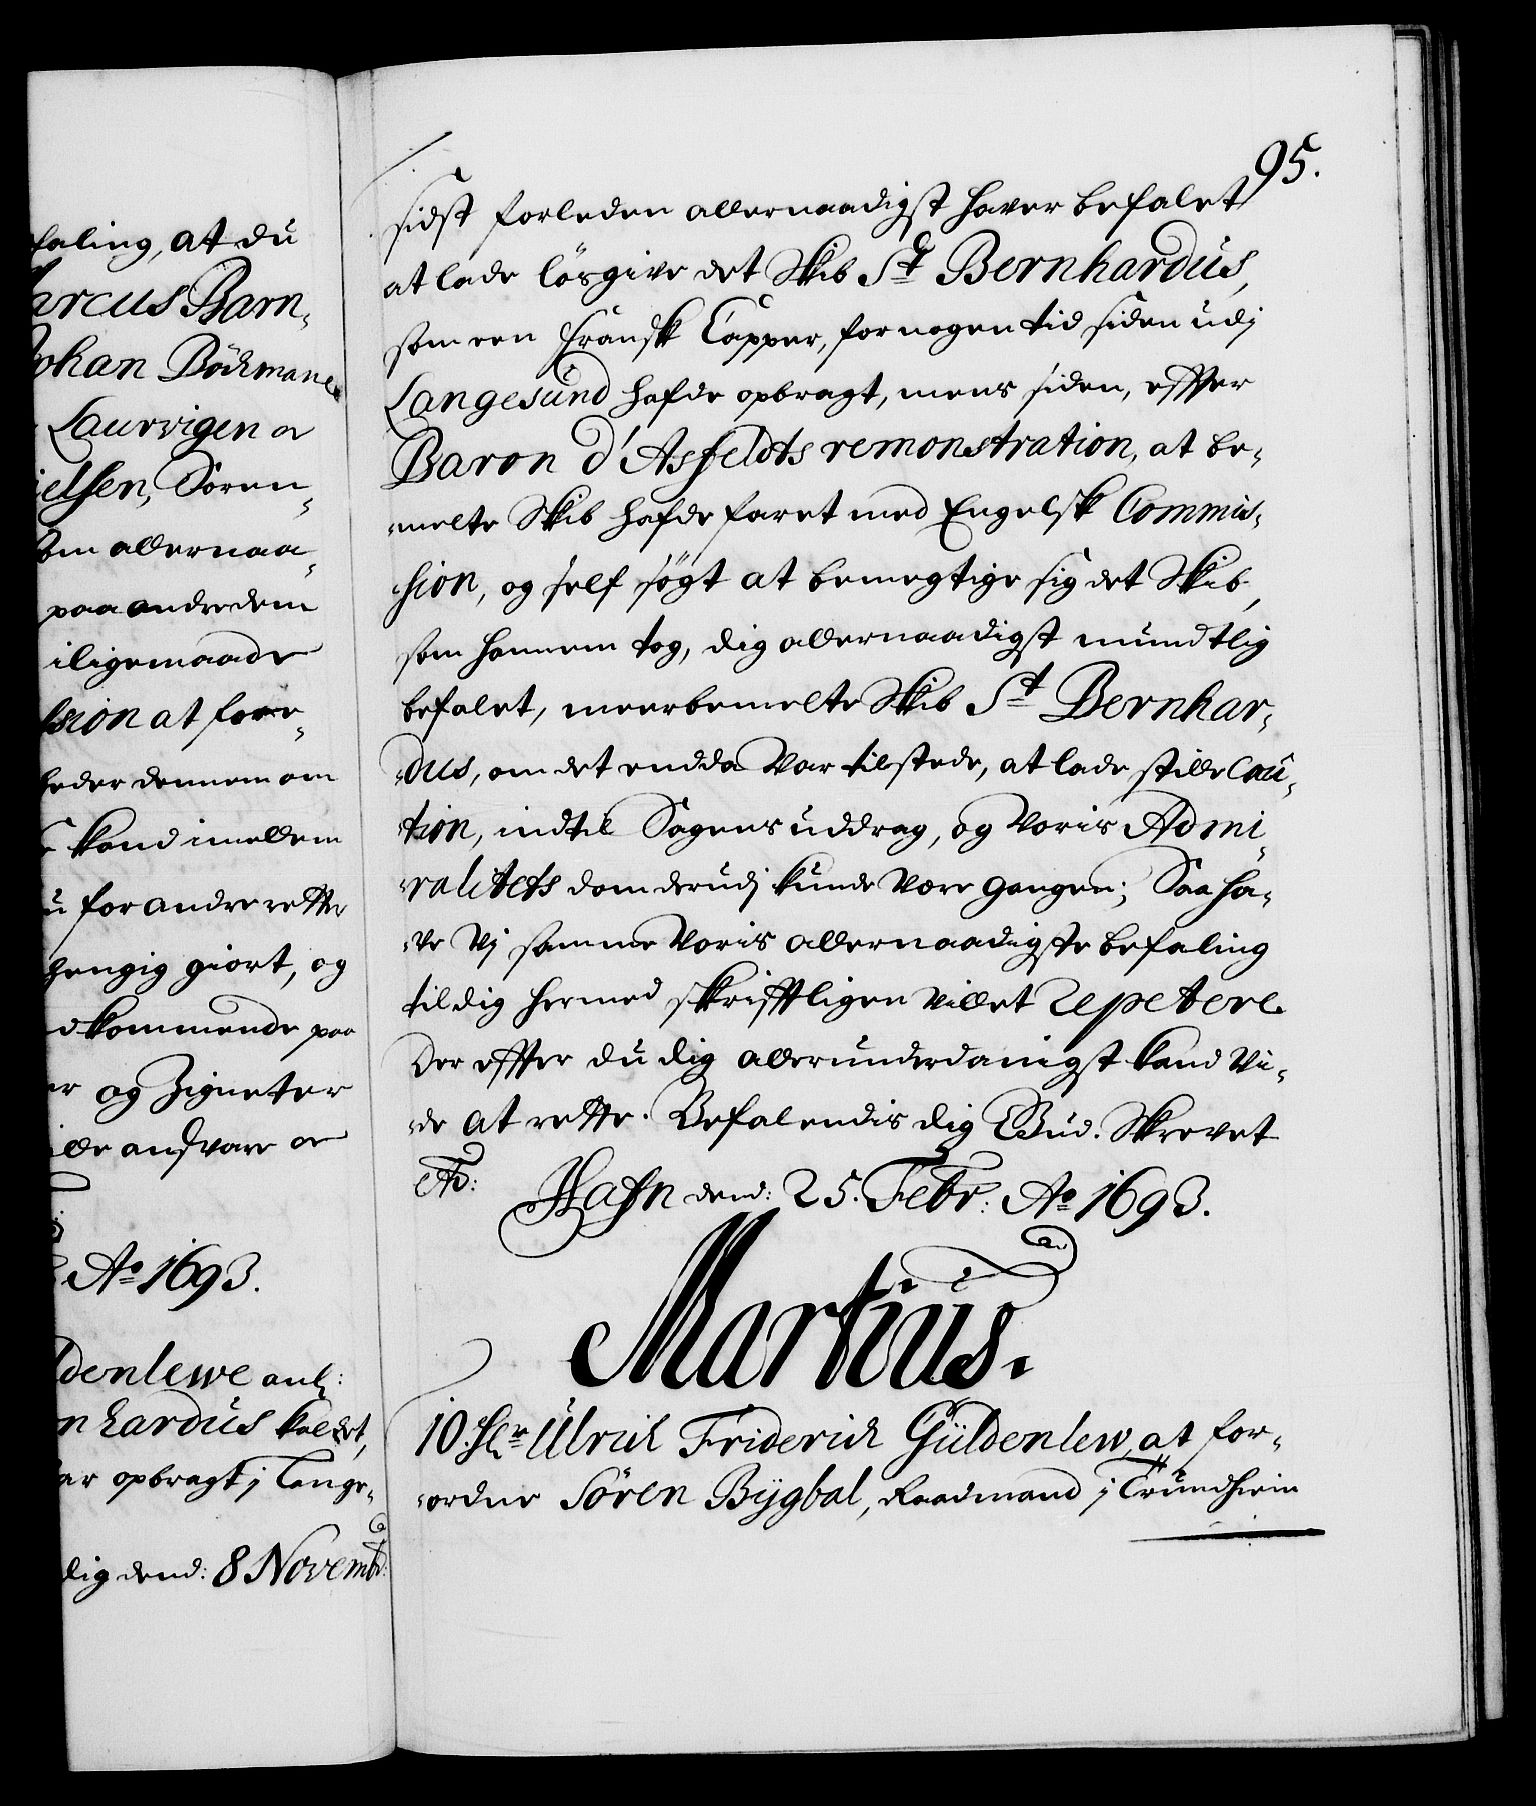 faling, at du
arcus Barn¬
ohan Böckmane
Laurvigen
ielsen, Sören
om allernaa¬
paa andre dem
iligemaade
sion at fore¬
heder dennem om
kand imellem
u for andre rette
hengig giort, og
dkommende paa
er og Zigneter
ille ansvare
Ao 1693.
denlewe anl:
nhardus kaldet,
ar opbragt j Lange¬
dig dend: 8 Novembr:
95.
sidst forleden allernaadigst haver befalet
at lade lösgive det Skib St Bernhardus,
som een Fransk Capper, for nogen tid siden udj
Langesund hafde opbragt, mens siden, effter
Baron d'Asfeldts remonstration, at be¬
melte Skib hafde faret med Engelsk Commis¬
sion, og self søgt at bemegtige sig det Skib,
som hannem tog, dig allernaadigst mundtlig
befalet, meerbemelte Skib St Bernhar¬
dus, om det endda var tilstede, at lade stille Cau¬
tion, indtil Sagens uddrag, og Voris Admi¬
ralitets dom derudj kunde være gangen; Saa ha¬
ve Vj samme Voris allernaadigste befaling
til dig hermed skrifftligen villet repetere.
Der effter du dig allerunderdanigst kand vi¬
de at rette. Befalendis dig Gud. Skrevet
Hafn dend: 25. Febr: Ao 1693.
Martius.
10. Hr Ulrich Friderich Güldenlew at for¬
ordne Sören Bÿgbal, Raadmand j Trundhiem